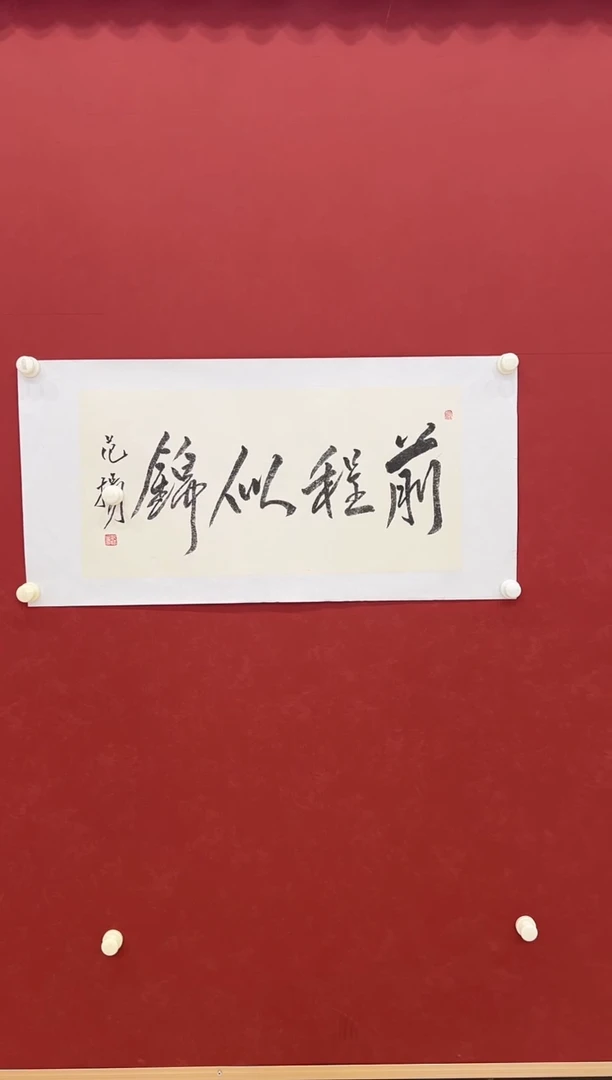 前程似錦
范